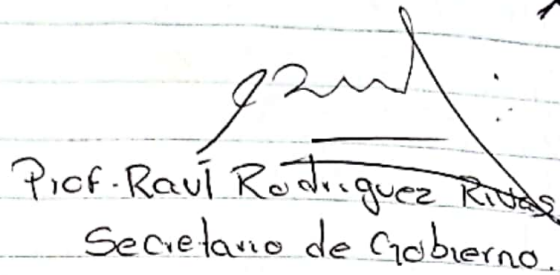 Prof. Raúl Rodriguez Rivas
Secretario de Gobierno.